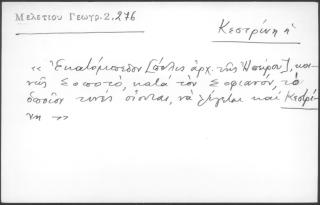 Μελετίου Γεωγρ. 2, 276
Κεστρίνη ἡ
« Ἑκατόμπεδον [πόλις ἀρχ. τῆς Ἠπείρου], κοι-
νῶς Σοποτό, κατὰ τὸν Σοφιανόν, τὸ
ὁποῖον τινές οἴονται, νὰ λέγεται καὶ Κεστρί-
νη »